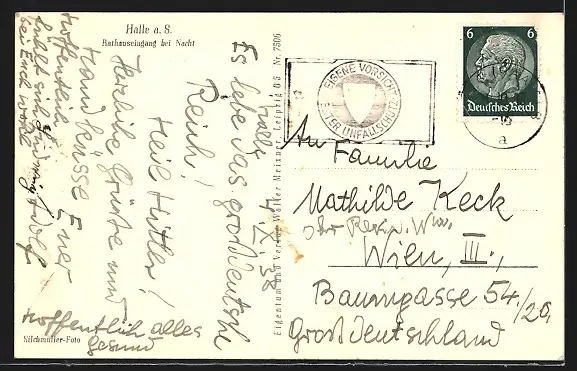 Halle a. S.
Rathauseingang bei Nacht
Halle 4. IX. 38
Es lebe das großdeutsche
Reich!
Heil Hitler!
Herzliche Grüße und
Handküsse Euer
Adolf
Hoffentlich
Hoffentlich alles
gesund
Silchmüller-Foto
Eigentum und Verlag Walter Meixner, Leipzig O5 Nr. 7606
EIGENE VORSICHT
BESTER UNFALLSCHUTZ
6 6
Deutsches Reich
a
An Familie
Mathilde Keck
Wien, III.,
Baumgasse 54/20,
Großdeutschland